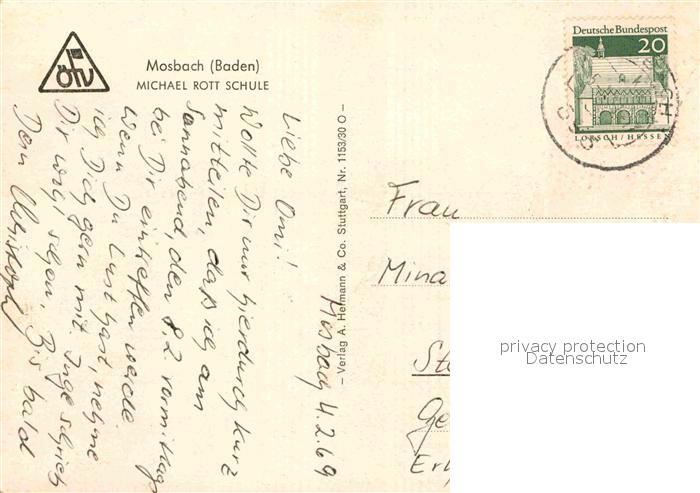 ÖTV
Mosbach (Baden)
MICHAEL ROTT SCHULE
Mosbach 4.2.69
Liebe Omi!
Wollte Dir nur hierdurch kurz
mitteilen, daß ich am
Sonnabend, den 8.2. vormittag
bei Dir eintreffen werde.
Wenn Du Lust hast, nehme
ich Dich gern mit. Inge schrieb
Dir wohl schon. Bis bald
Dein Christoph
– Verlag A. Hermann & Co. Stuttgart, Nr. 1153/30 O –
Deutsche Bundespost
20
LORSCH/HESSEN
Frau
Mina
St
Ge
Er
privacy protection
Datenschutz